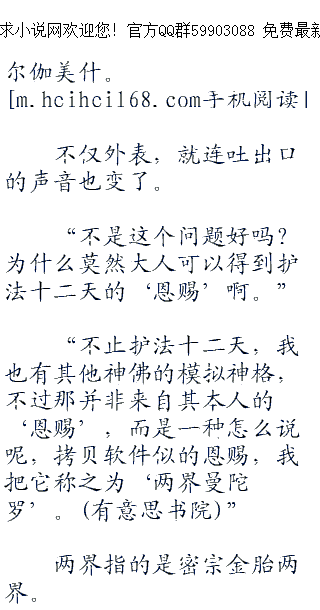 求小说网欢迎您! 官方QQ群59903088 免费最新
尔伽美什。
[m.hcihci168.com手机阅读|
不仅外表，就连吐出口
的声音也变了。
“不是这个问题好吗？
为什么莫然大人可以得到护
法十二天的‘恩赐’啊。”
“不止护法十二天，我
也有其他神佛的模拟神格，
不过那并非来自其本人的
‘恩赐’，而是一种怎么说
呢，拷贝软件似的恩赐，我
把它称之为‘两界曼陀
罗’。(有意思书院)”
两界指的是密宗金胎两
界。